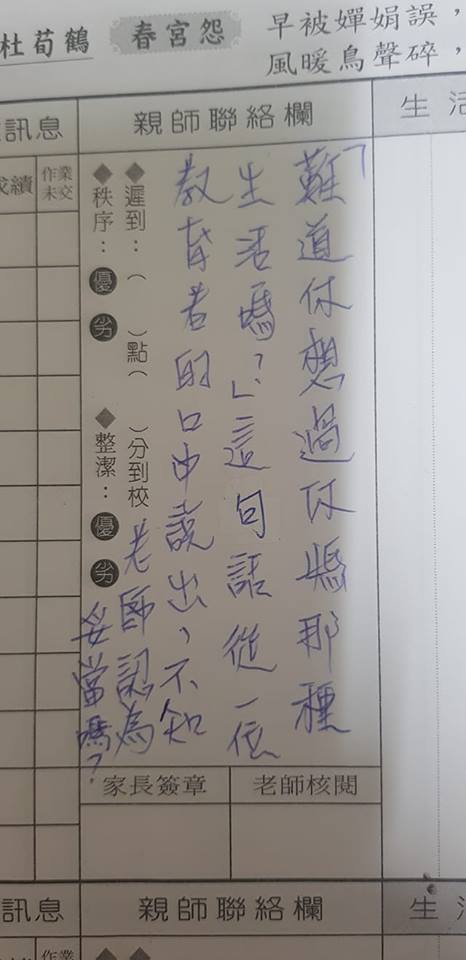 杜荀鶴 春宮怨
早被嬋娟誤，
風暖鳥聲碎，
訊息
親師聯絡欄
生活
成績
作業未交
「難道你想過你媽那種
生活嗎？」這句話從一位
教育者的口中說出，不知
老師認為
妥當嗎？
◆遲到：（ ）點（ ）分到校
◆秩序：優 劣 ◆整潔：優 劣
家長簽章
老師核閱
訊息
親師聯絡欄
生活
作業